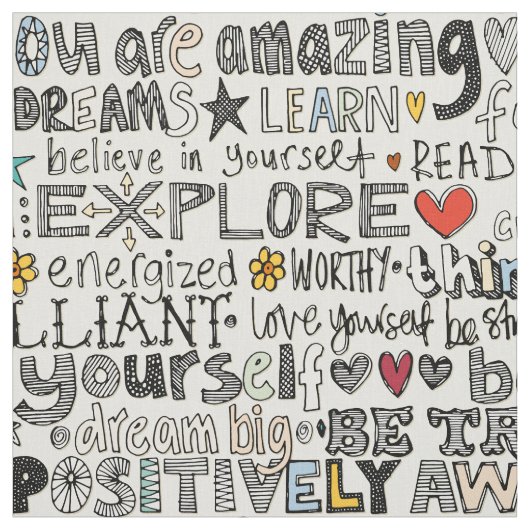 you are amazing
DREAMS LEARN fe
believe in yourself READ
EXPLORE
energized WORTHY thin
LLIANT love yourself be st
yourself b
dream big BE TR
POSITIVELY AW